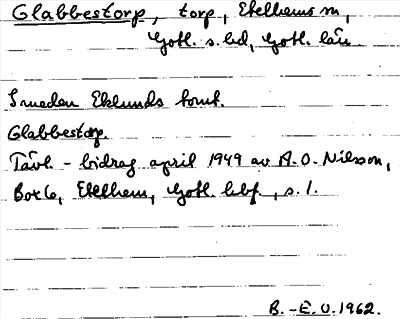 Glabbestorp, torp, Etelhems sn,
Gotl. s. hd, Gotl. län.
Smeden Eklunds tomt.
Glabbestorp.
Tävl. - bidrag april 1949 av A.O. Nilsson,
Botes, Etelhem, Gotl. hbf, s. 1.
B.-E. O. 1962.